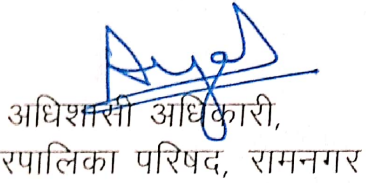 अधिशासी अधिकारी,
रपालिका परिषद, रामनगर